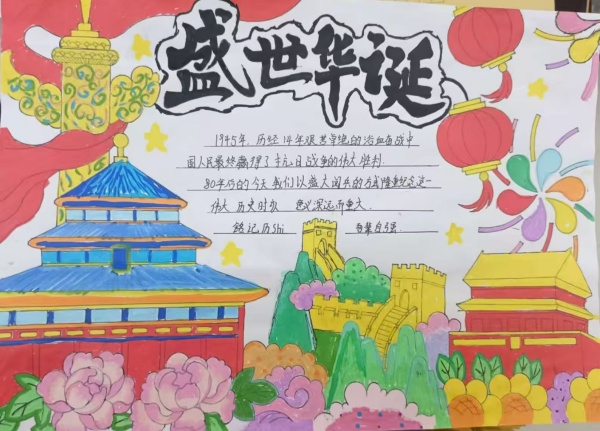 盛世华诞
1945年，历经14年艰苦卓绝的浴血奋战中
国人民最终赢得了抗日战争的伟大胜利.
80年后的今天我们以盛大阅兵的方式隆重纪念这一
伟大历史时刻 意义深远而重大.
铭记历Shi 自强.